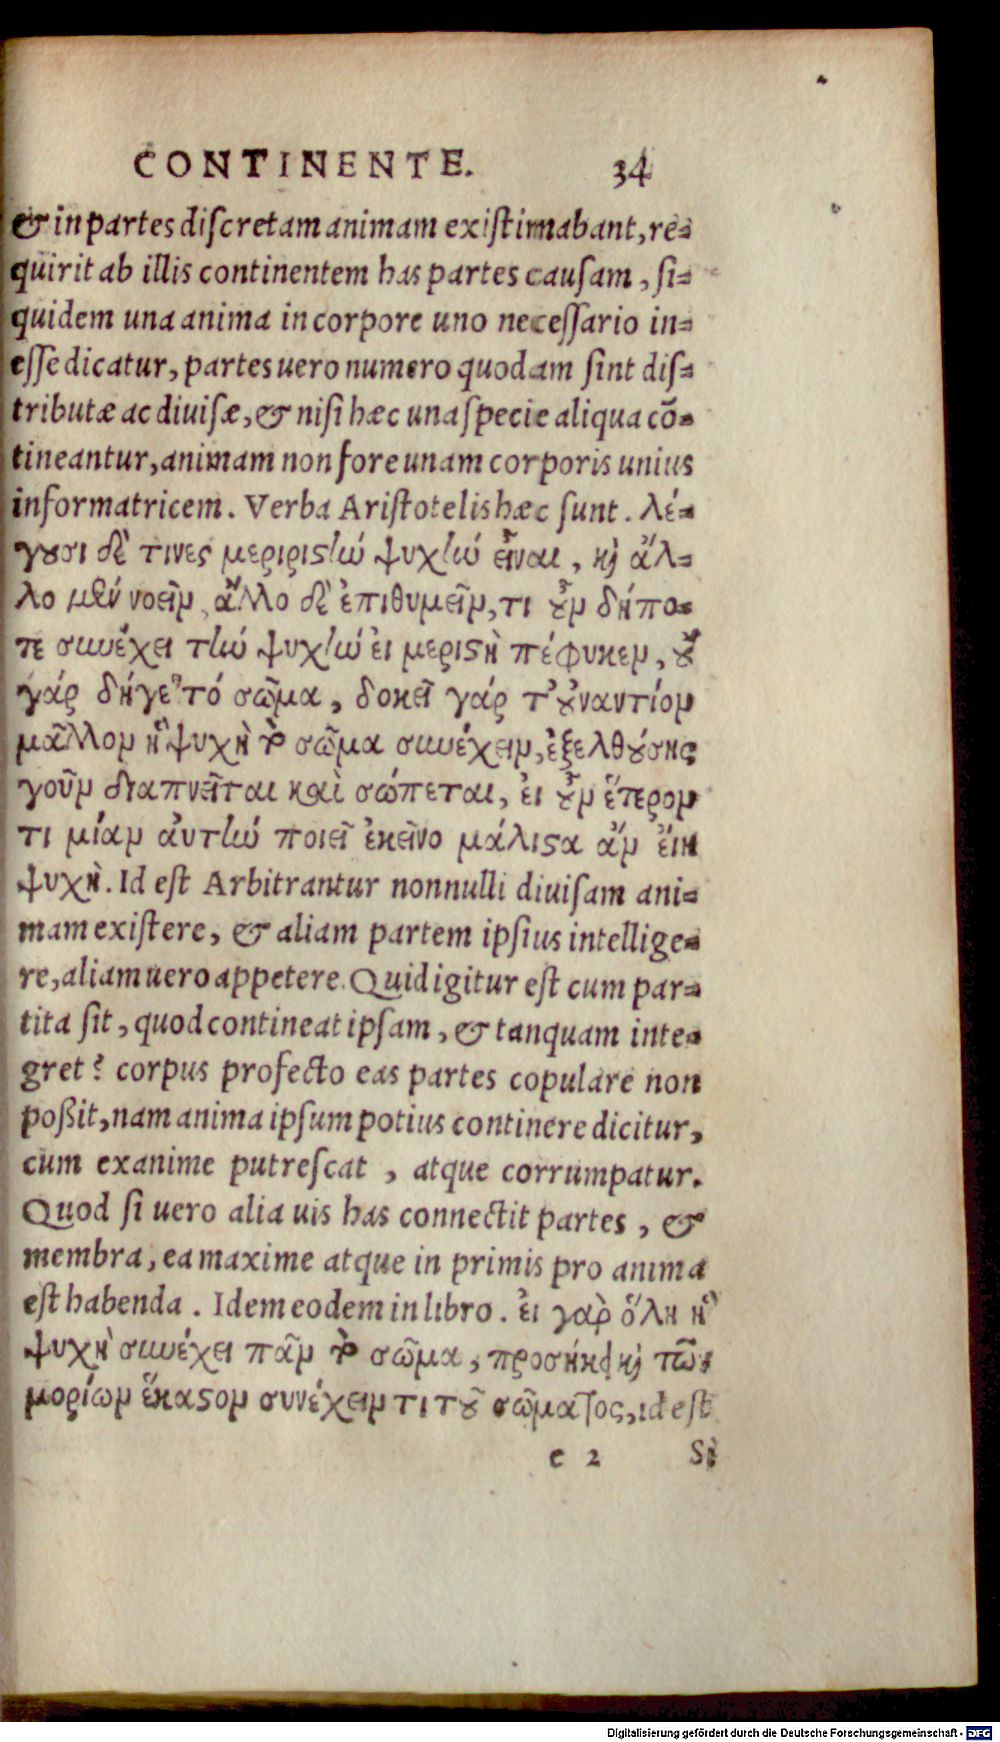 CONTINENTE. 34
& in partes discretam animam existimabant, re-
quirit ab illis continentem has partes causam, si-
quidem una anima in corpore uno necessario in-
esse dicatur, partes uero numero quodam sint dis-
tributæ ac diuisæ, & nisi hæc una specie aliqua cō-
tineantur, animam non fore unam corporis unius
informatricem. Verba Aristotelis hæc sunt. λέ-
γουσι δέ τινες μεριριστὴν ψυχὴν εἶναι, καὶ ἄλ-
λο μὲν νοεῖν ἄλλο δὲ ἐπιθυμεῖν, τι οὖν δήπο-
τε συνέχει τὴν ψυχὴν ἐι μεριστὴ πέφυκεν, οὐ
γάρ δήγε τό σῶμα, δοκεῖ γάρ τ' οὐναντίον
μᾶλλον ἡ ψυχὴ τὸ σῶμα συνέχειν, ἐξελθούσης
γοῦν διαπνεῖται καὶ σώπεται, ἐι οὖν ἕτερον
τι μίαν ἀυτὴν ποιεῖ ἐκεῖνο μάλιστα ἄν ἔιη
ψυχὴ. Id est Arbitrantur nonnulli diuisam ani-
mam existere, & aliam partem ipsius intellige-
re, aliam uero appetere. Quid igitur est cum par-
tita sit, quod contineat ipsam, & tanquam inte-
gret? corpus profecto eas partes copulare non
poßit, nam anima ipsum potius continere dicitur,
cum exanime putrescat, atque corrumpatur.
Quod si uero alia uis has connectit partes, &
membra, ea maxime atque in primis pro anima
est habenda. Idem eodem in libro. ἐι γαρ ὅλη ἡ
ψυχὴ συνέχει πᾶν τὸ σῶμα, προσήκει καὶ τῶν
μορίων ἕκαστον συνέχειν τι τοῦ σώματος, id est
e 2 Si
Digitalisierung gefördert durch die Deutsche Forschungsgemeinschaft - DFG